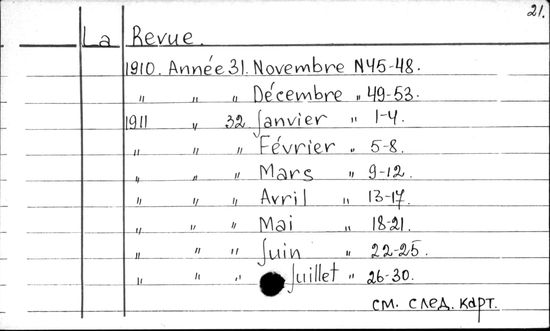 21.
La Revue.
1910. Année 31. Novembre N45-48.
" " " Décembre " 49-53.
1911 " 32. Janvier " 1-4.
" " " Février " 5-8.
" " " Mars " 9-12.
" " " Avril " 13-17.
" " " Mai " 18-21.
" " " Juin " 22-25.
" " " Juillet " 26-30.
см. след. карт.